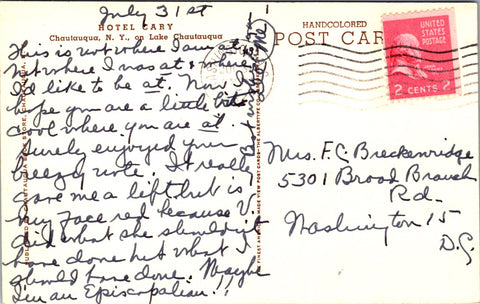 July 31st
HOTEL CARY
Chautauqua, N. Y., on Lake Chautauqua
This is not where I am at
Not where I was at & where
I'd like to be at. Now I
hope you are a little bit
cool where you are at.
Surely enjoyed your
breezy note. It really
gave me a lift but is
my face red because I
did what she shouldn't
have done but what I
should have done. Maybe
I'm an Episcopalian!!
HANDCOLORED
POST CAR
UNITED
STATES
POSTAGE
2 CENTS 2
Mrs. F. C. Breckenridge
5301 Broad Branch
Rd.
Washington 15
D.C.